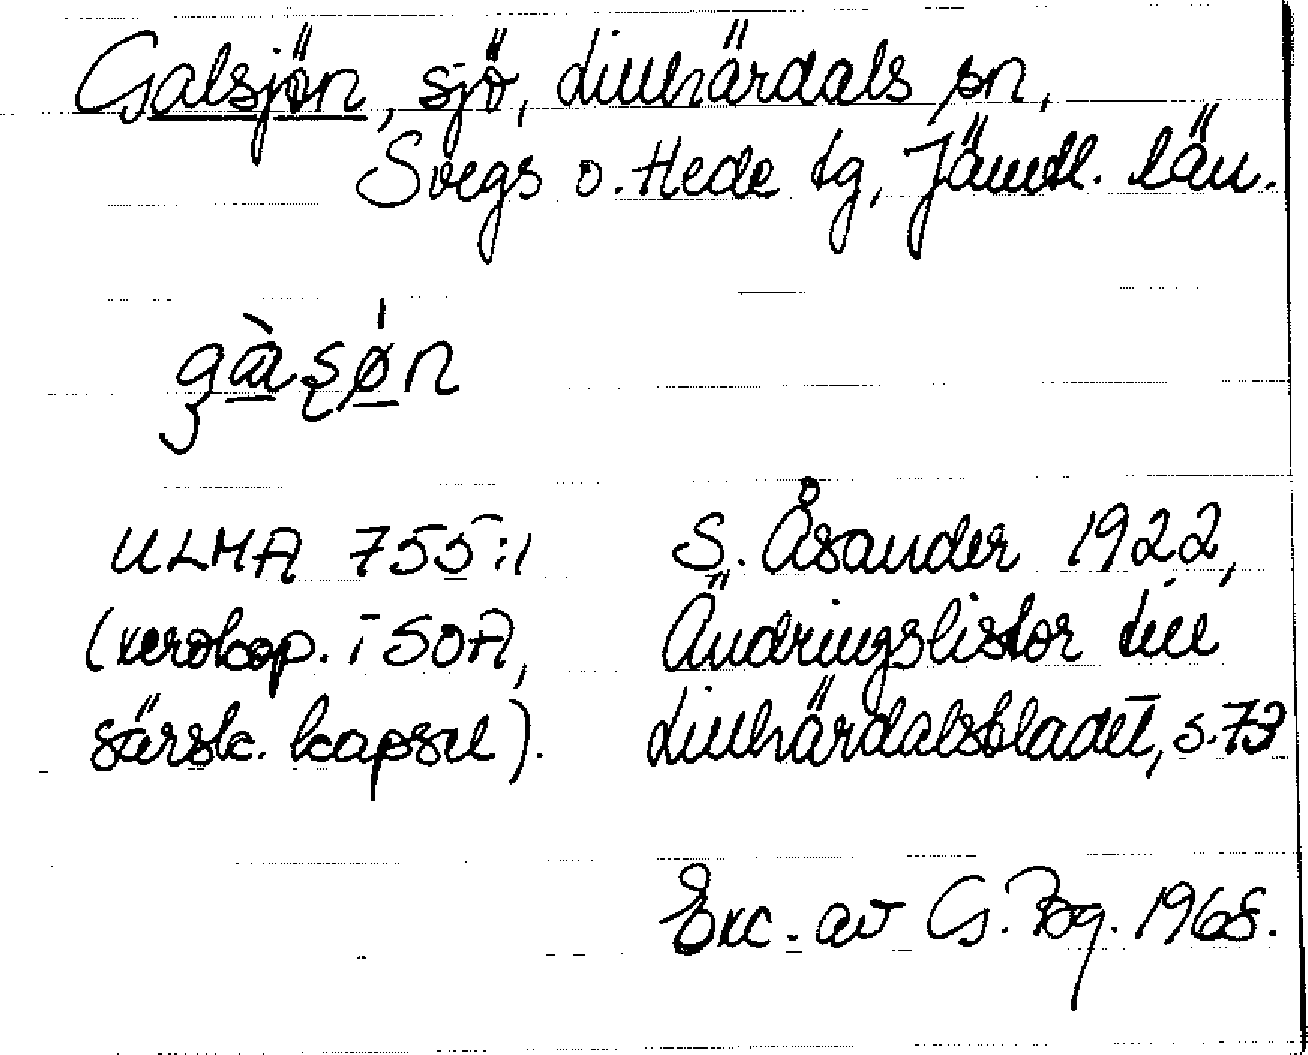 Galsjön, sjö, Lillhärdals sn,
Svegs o. Hede tg, Jämtl. län.
gàsǿn
ULMA 755:1
(xerokop. i SOA,
särsk. kapsel).
S. Åsander 1922,
Ändringslistor till
Lillhärdalsbladet, s. 73
Exc. av G. Bg. 1968.